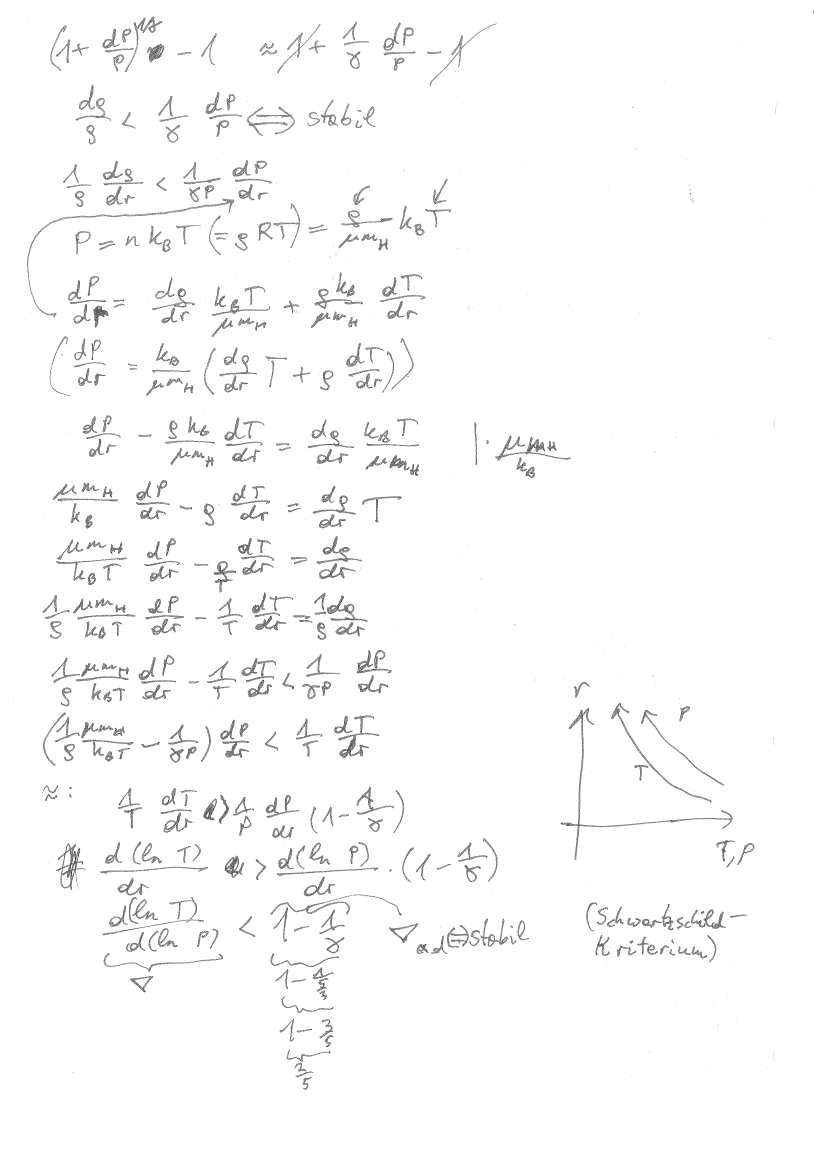 (1 + dP/P)^1/γ − 1 ≈ 1 + 1/γ dP/P − 1
dρ/ρ < 1/γ dP/P ⟺ stabil
1/ρ dρ/dr < 1/(γP) dP/dr
P = n k_B T (= ρ RT) = ρ/(μm_H) k_B T
dP/dr = dρ/dr k_B T/(μm_H) + ρ k_B/(μm_H) dT/dr
(dP/dr = k_B/(μm_H) (dρ/dr T + ρ dT/dr))
dP/dr − ρ k_B/(μm_H) dT/dr = dρ/dr k_B T/(μm_H) | · μm_H/k_B
μm_H/k_B dP/dr − ρ dT/dr = dρ/dr T
μm_H/(k_B T) dP/dr − ρ/T dT/dr = dρ/dr
1/ρ μm_H/(k_B T) dP/dr − 1/T dT/dr = 1/ρ dρ/dr
1/ρ μm_H/(k_B T) dP/dr − 1/T dT/dr < 1/(γP) dP/dr
(1/ρ μm_H/(k_B T) − 1/(γP)) dP/dr < 1/T dT/dr
≈: 1/T dT/dr > 1/P dP/dr (1 − 1/γ)
d(ln T)/dr > d(ln P)/dr · (1 − 1/γ)
d(ln T)/d(ln P) < 1 − 1/γ ∇ad ⟺ stabil
∇
1 − 1/(5/3)
1 − 3/5
2/5
r
P
T
T, P
(Schwartzschild-
Kriterium)